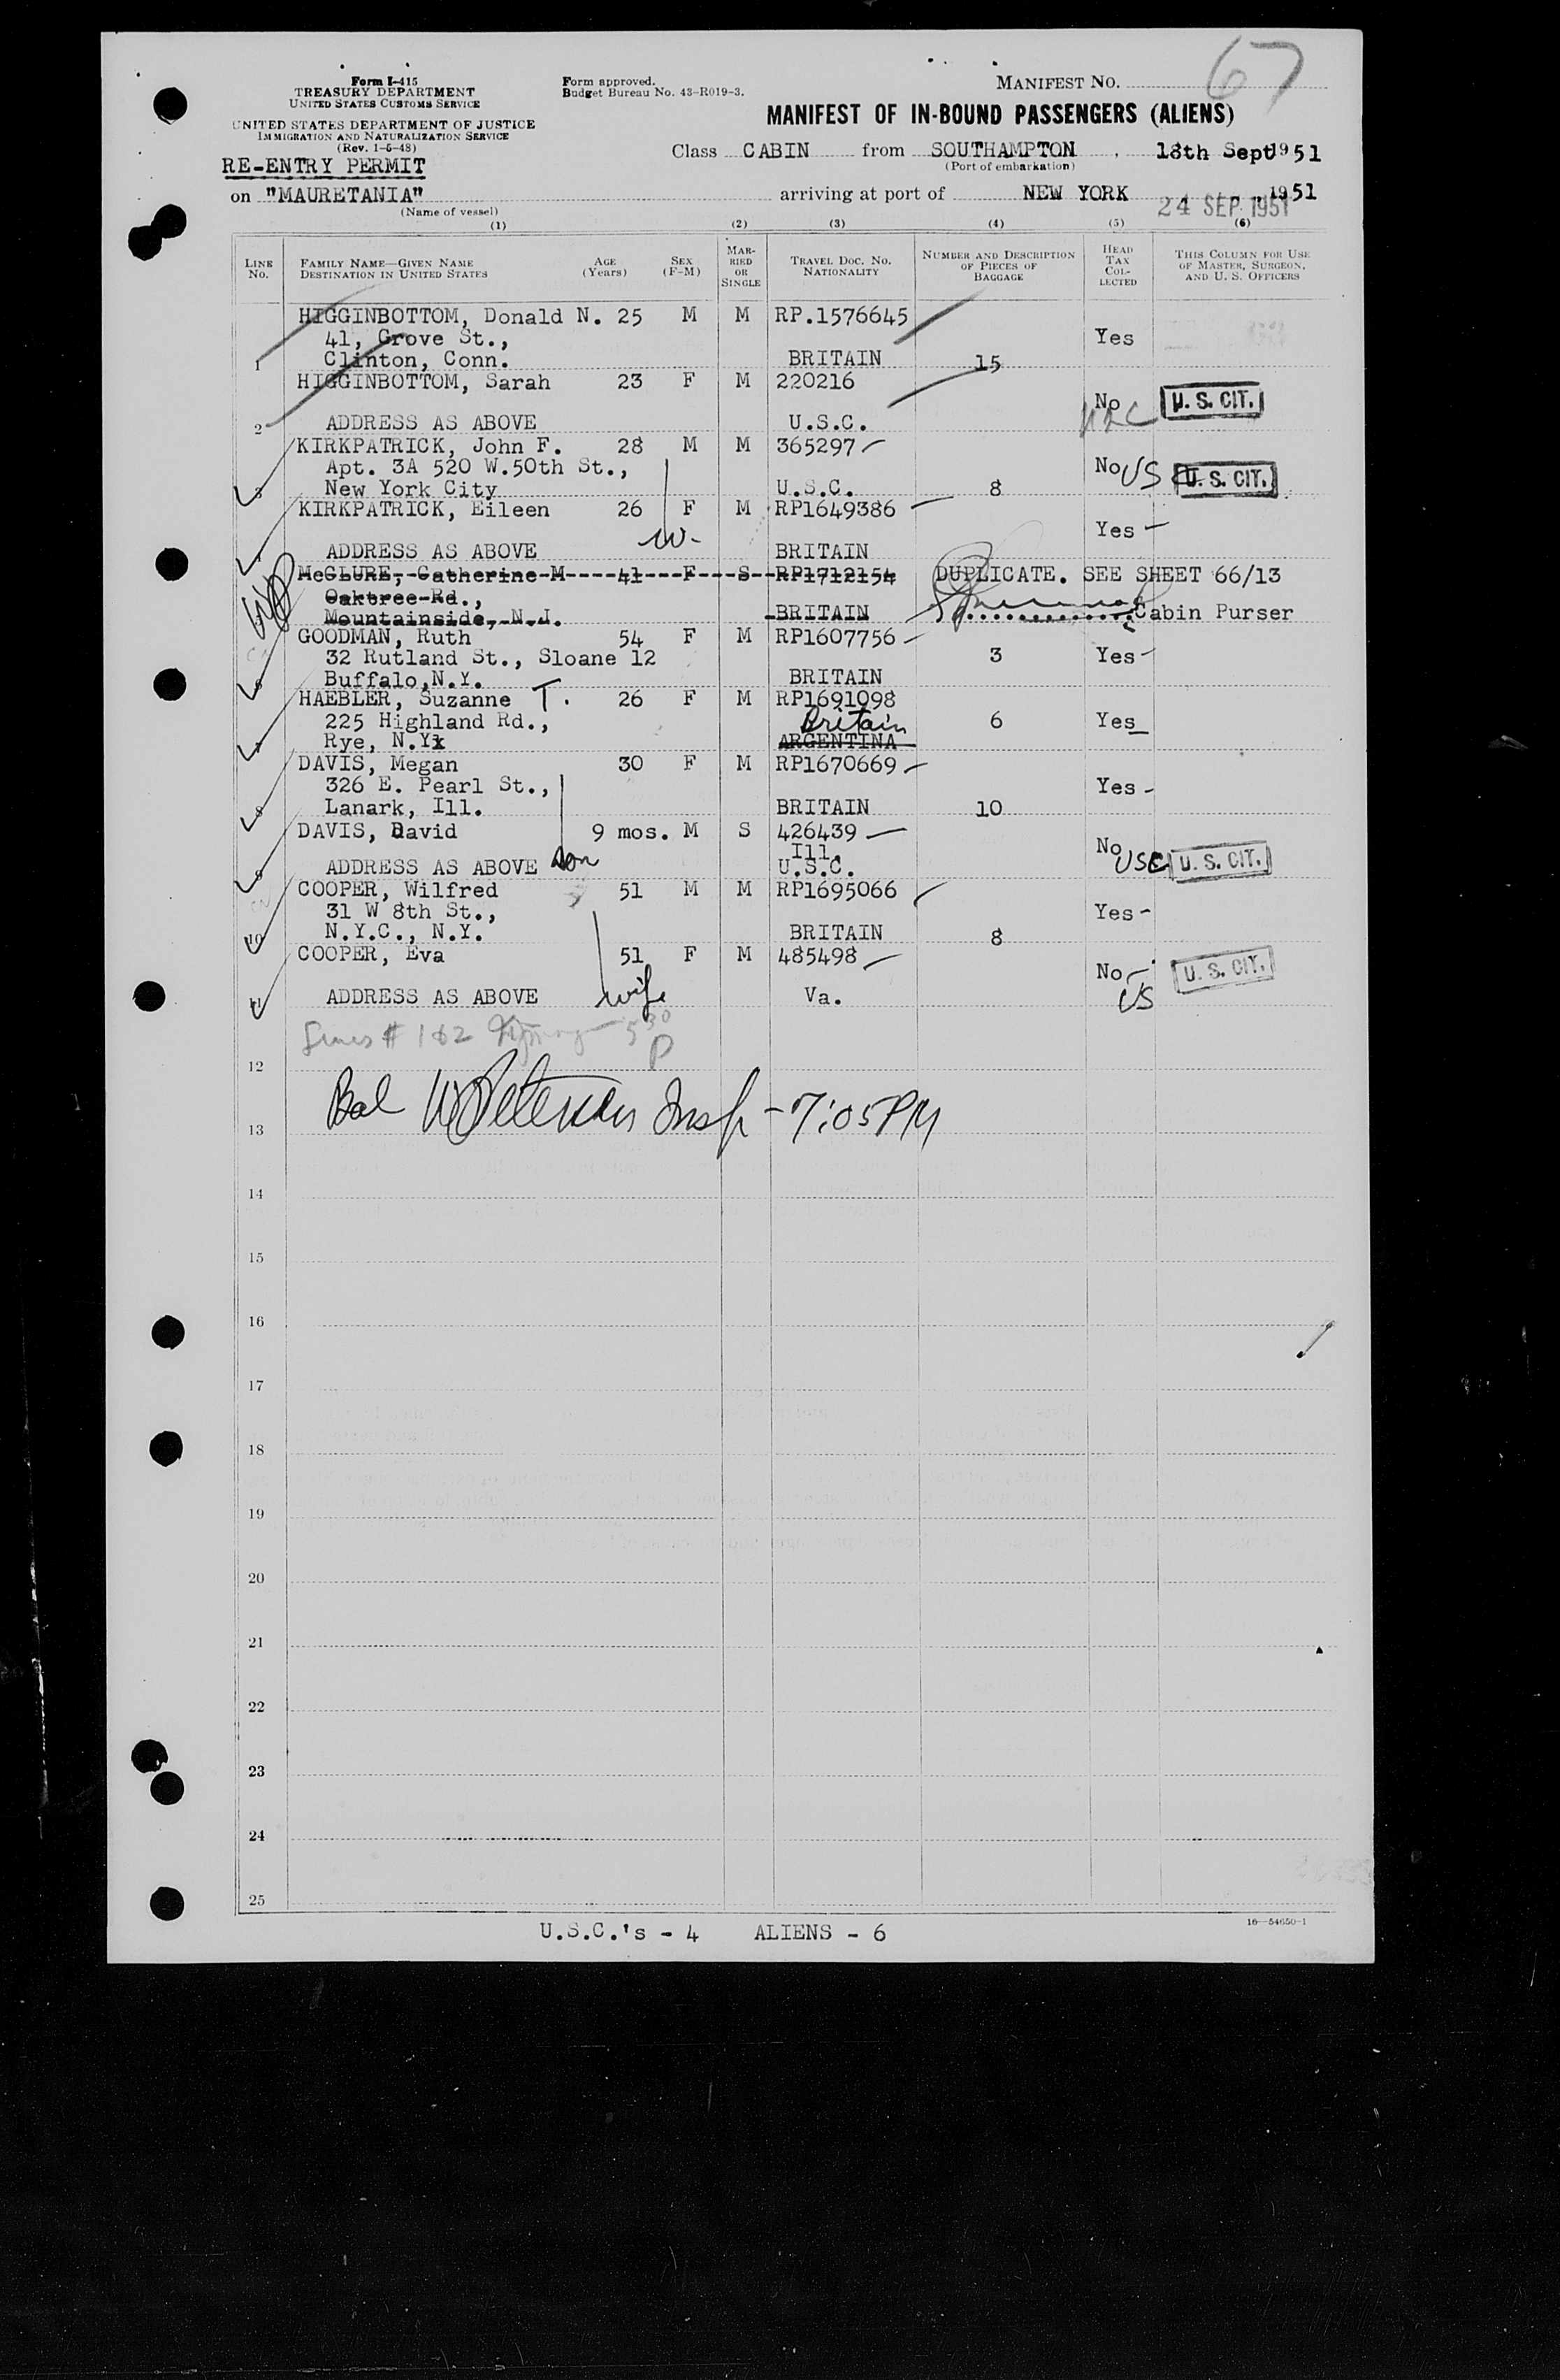 67
Form I-415
TREASURY DEPARTMENT
UNITED STATES CUSTOMS SERVICE
Form approved.
Budget Bureau No. 43-R019-3.
MANIFEST NO.
MANIFEST OF IN-BOUND PASSENGERS (ALIENS)
UNITED STATES DEPARTMENT OF JUSTICE
IMMIGRATION AND NATURALIZATION SERVICE
(Rev. 1-5-48)
RE-ENTRY PERMIT
Class CABIN from SOUTHAMPTON , 18th Sept 1951
(Port of embarkation)
on "MAURETANIA" arriving at port of NEW YORK 24 SEP 1951 , 1951
(Name of vessel)
(1) (2) (3) (4) (5) (6)
LINE No. FAMILY NAME—GIVEN NAME DESTINATION IN UNITED STATES AGE (Years) SEX (F-M) MARRIED OR SINGLE TRAVEL DOC. NO. NATIONALITY NUMBER AND DESCRIPTION OF PIECES OF BAGGAGE HEAD TAX COLLECTED THIS COLUMN FOR USE OF MASTER, SURGEON, AND U. S. OFFICERS
HIGGINBOTTOM, Donald N. 25 M M RP.1576645
41, Grove St., Yes
1 Clinton, Conn. BRITAIN 15
HIGGINBOTTOM, Sarah 23 F M 220216
No U. S. CIT.
2 ADDRESS AS ABOVE U.S.C.
KIRKPATRICK, John F. 28 M M 365297
Apt. 3A 520 W.50th St., No US U. S. CIT.
3 New York City U.S.C. 8
KIRKPATRICK, Eileen 26 F M RP1649386
Yes
W.
ADDRESS AS ABOVE BRITAIN
McGLURE, Catherine M 41 F S RP1712154 DUPLICATE. SEE SHEET 66/13
Oaktree Rd.,
Mountainside, N.J. BRITAIN Cabin Purser
GOODMAN, Ruth 54 F M RP1607756
32 Rutland St., Sloane 12 3 Yes
6 Buffalo,N.Y. BRITAIN
HAEBLER, Suzanne T. 26 F M RP1691098
225 Highland Rd., Britain 6 Yes
7 Rye, N.Yx ARGENTINA
DAVIS, Megan 30 F M RP1670669
326 E. Pearl St., Yes
8 Lanark, Ill. BRITAIN 10
DAVIS, David 9 mos. M S 426439
Ill. No USC U. S. CIT.
9 ADDRESS AS ABOVE son U.S.C.
COOPER, Wilfred 51 M M RP1695066
31 W 8th St., Yes
10 N.Y.C., N.Y. BRITAIN 8
COOPER, Eva 51 F M 485498
No US U. S. CIT.
11 ADDRESS AS ABOVE wife Va.
Lines # 1 & 2 5 30 P
12
Bal W Peterson Insp - 7:05 PM
13
14
15
16
17
18
19
20
21
22
23
24
25
U.S.C.'s - 4 ALIENS - 6
16—54650-1